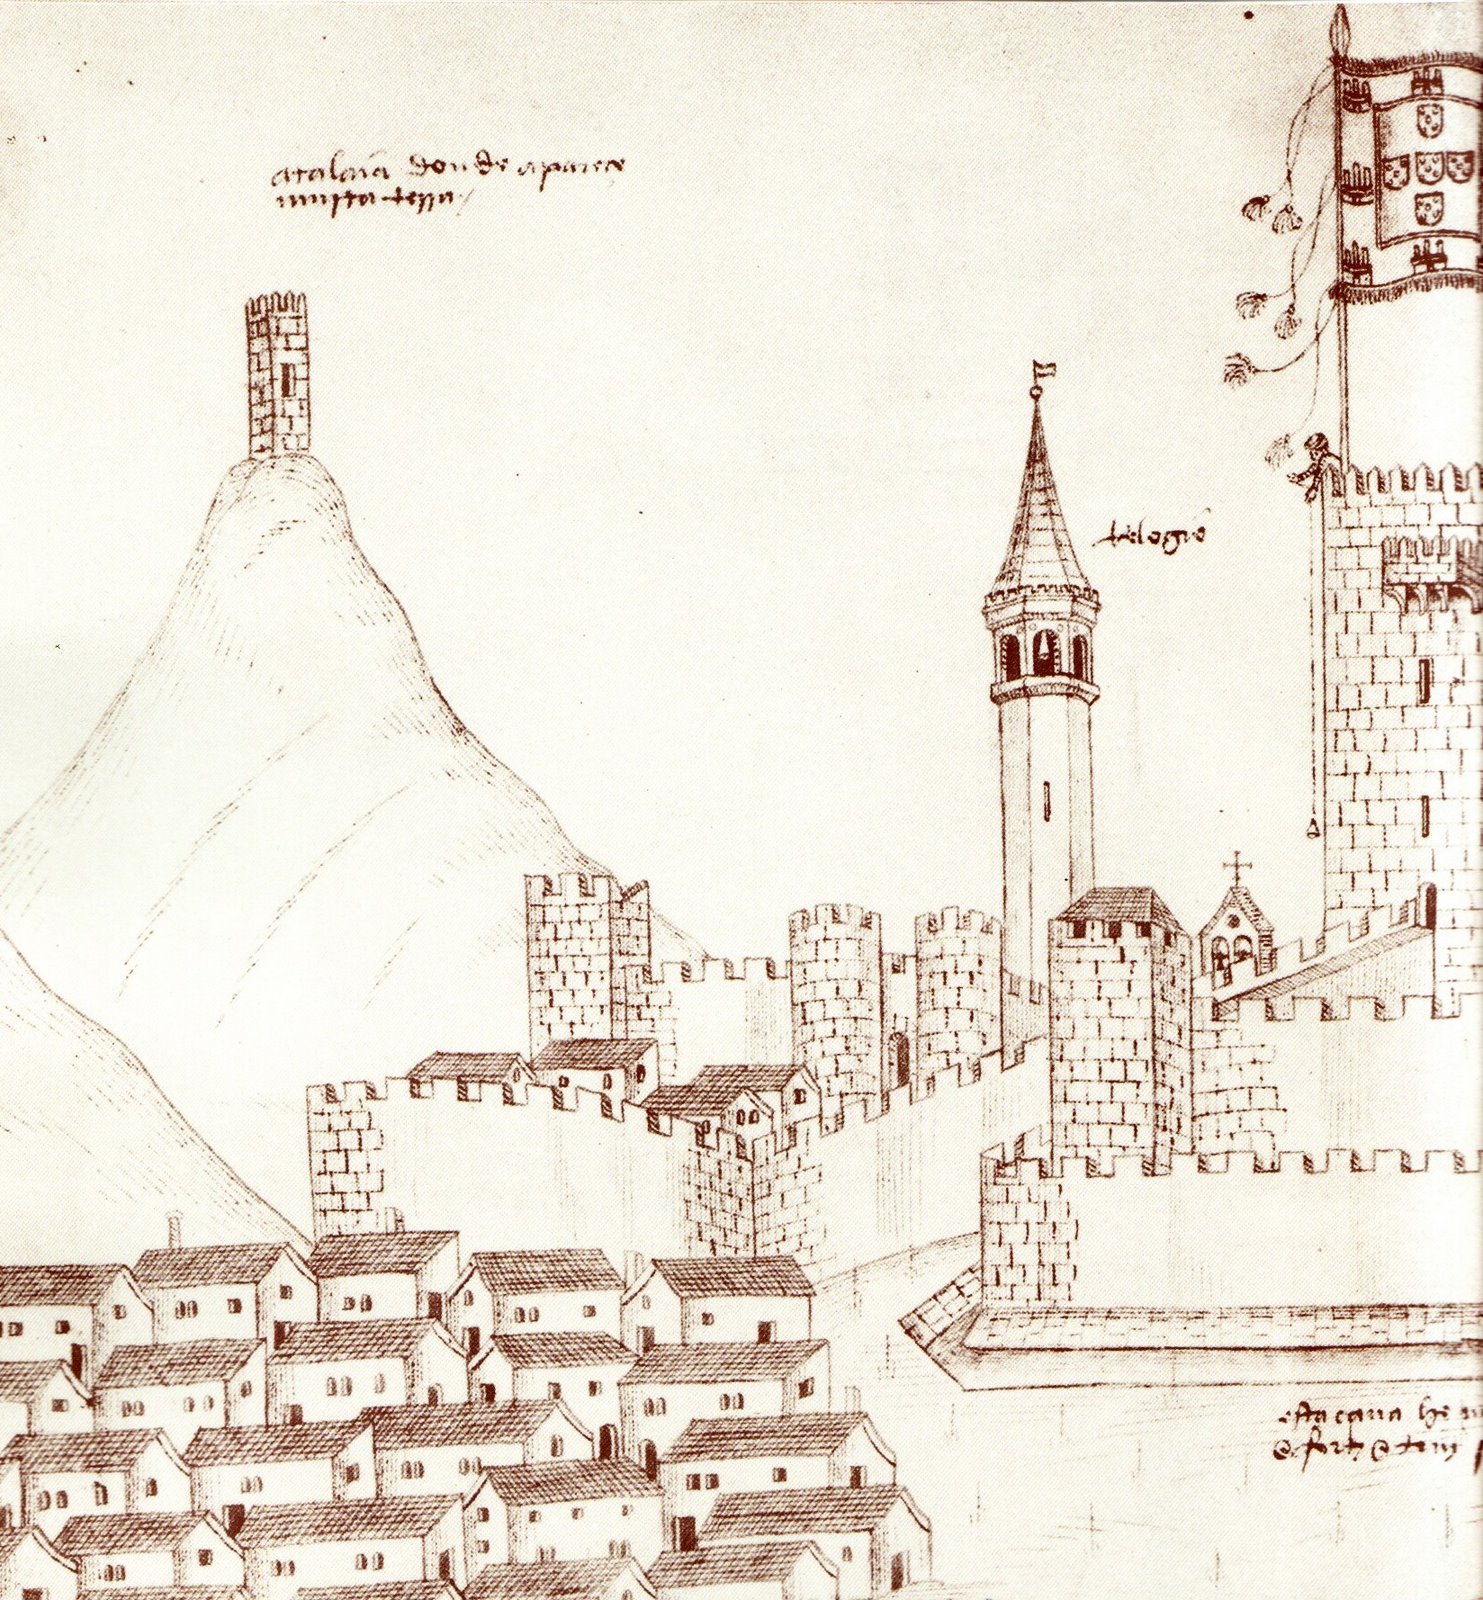 atalaia donde apareçe
muita terra
relogio
esta caua he
e forte e tem